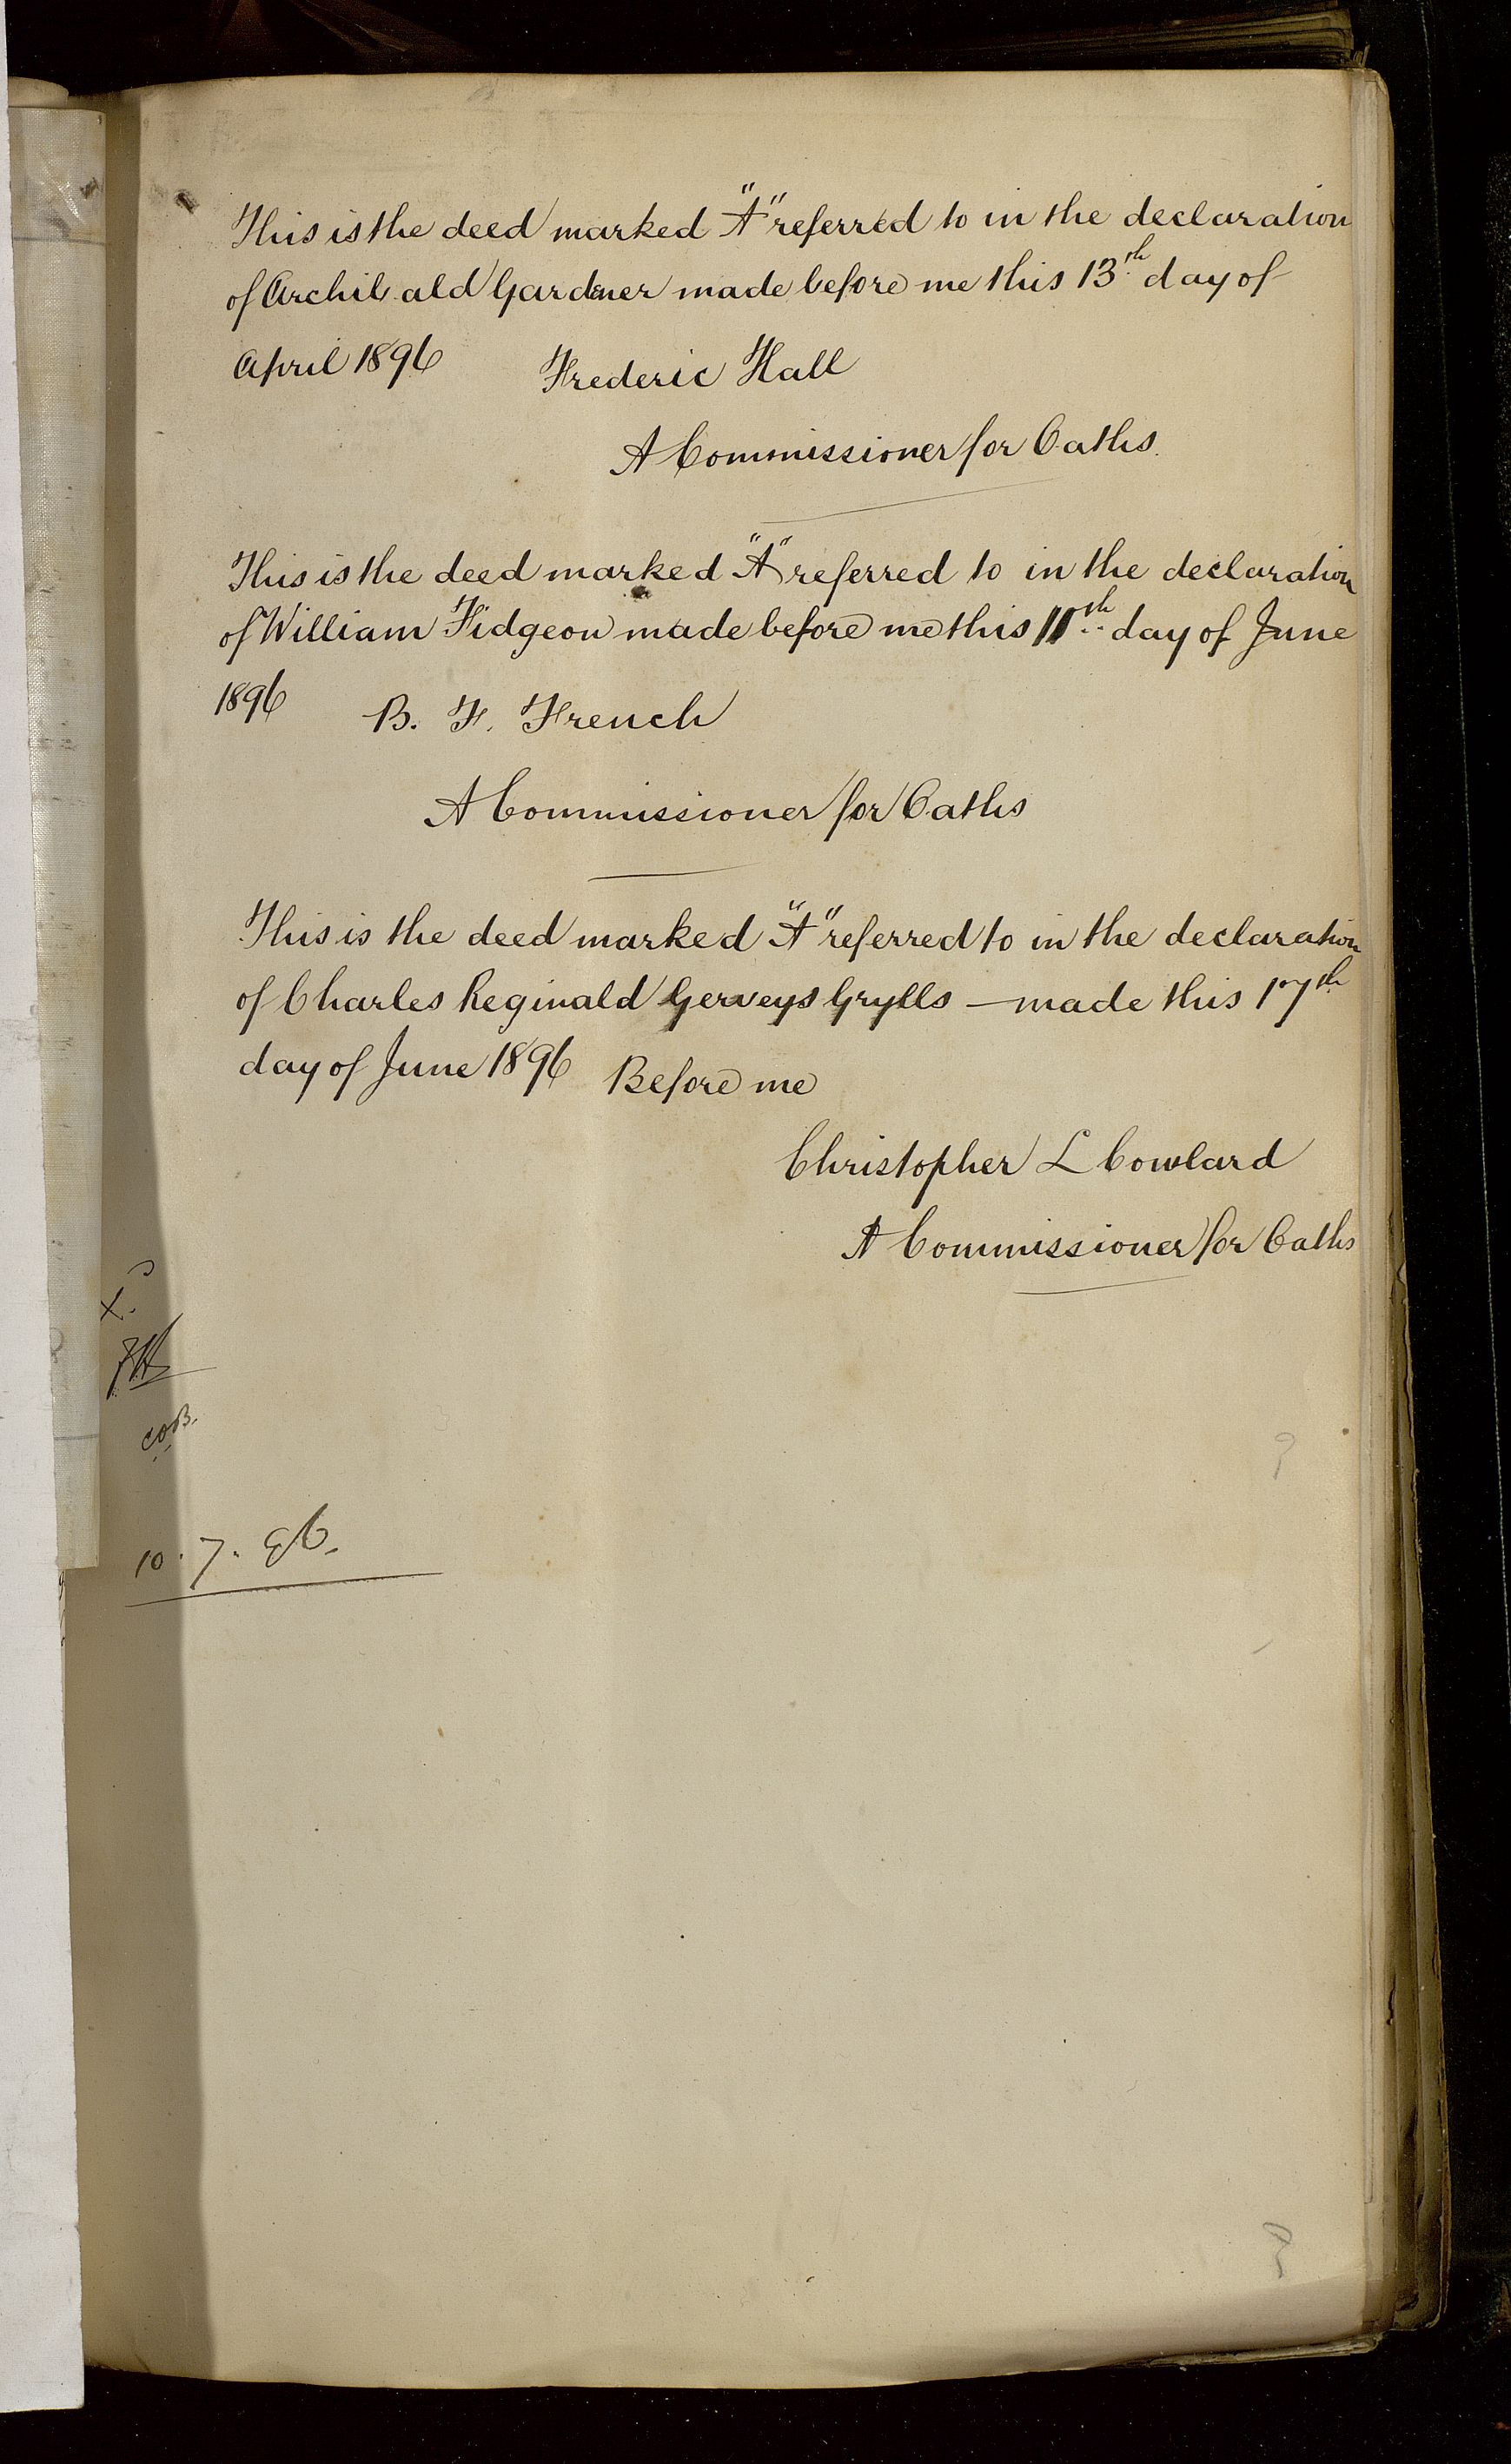 This is the deed marked "A" referred to in the declaration
of Archibald Gardner made before me this 13th day of
April 1896 Frederic Hall
A Commissioner for Oaths.
This is the deed marked "A" referred to in the declaration
of William Fidgeon made before me this 11th day of June
1896 B. F. French
A Commissioner for Oaths
This is the deed marked "A" referred to in the declaration
of Charles Reginald Gerveys Grylls — made this 17th
day of June 1896 Before me
Christopher L Cowlard
A Commissioner for Oaths
10.7.96.